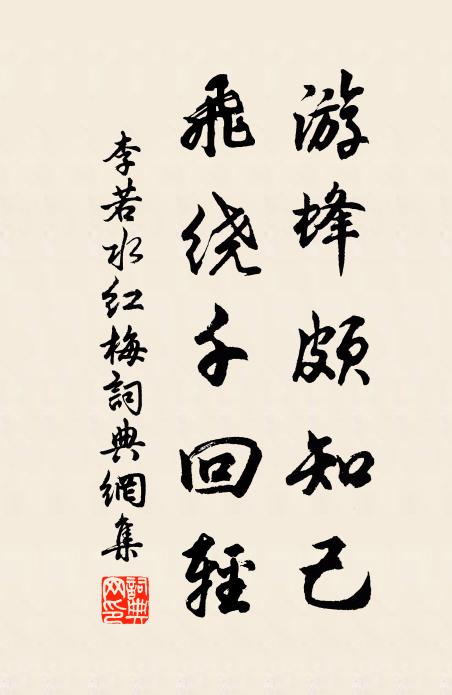 游蜂颇知己
飛绕千回輕
李若水红梅詞典網集
詞典网印